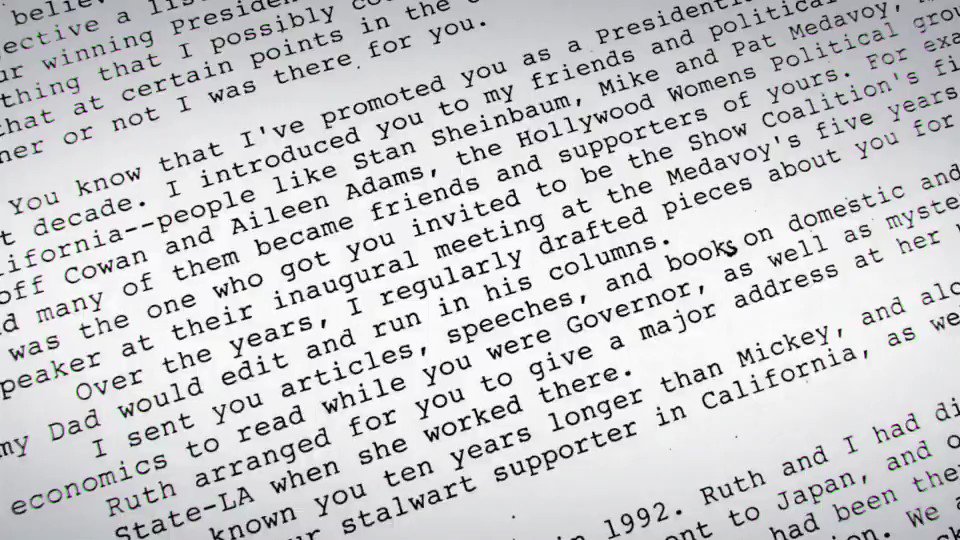 believe
ective a lis
ur winning Presiden
thing that I possibly co
that at certain points in the c
her or not I was there for you.
You know that I've promoted you as a Presidenti
t decade. I introduced you to my friends and political
lifornia--people like Stan Sheinbaum, Mike and Pat Medavoy,
off Cowan and Aileen Adams, the Hollywood Womens Political grou
d many of them became friends and supporters of yours. For exa
was the one who got you invited to be the Show Coalition's fi
peaker at their inaugural meeting at the Medavoy's five years
Over the years, I regularly drafted pieces about you for
my Dad would edit and run in his columns.
I sent you articles, speeches, and books on domestic and
economics to read while you were Governor, as well as myste
Ruth arranged for you to give a major address at her
State-LA when she worked there.
known you ten years longer than Mickey, and alo
r stalwart supporter in California, as we
in 1992. Ruth and I had di
nt to Japan, and o
had been the
on. We a